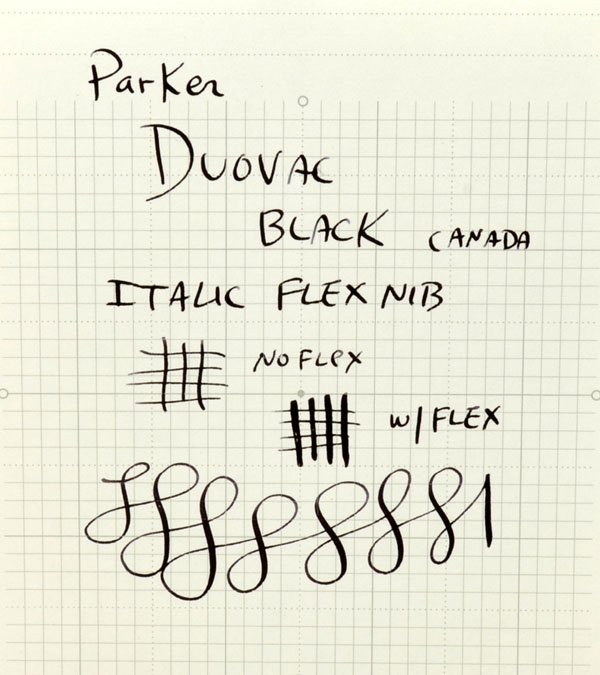 Parker
DUOVAC
BLACK CANADA
ITALIC FLEX NIB
NO FLEX
W/FLEX